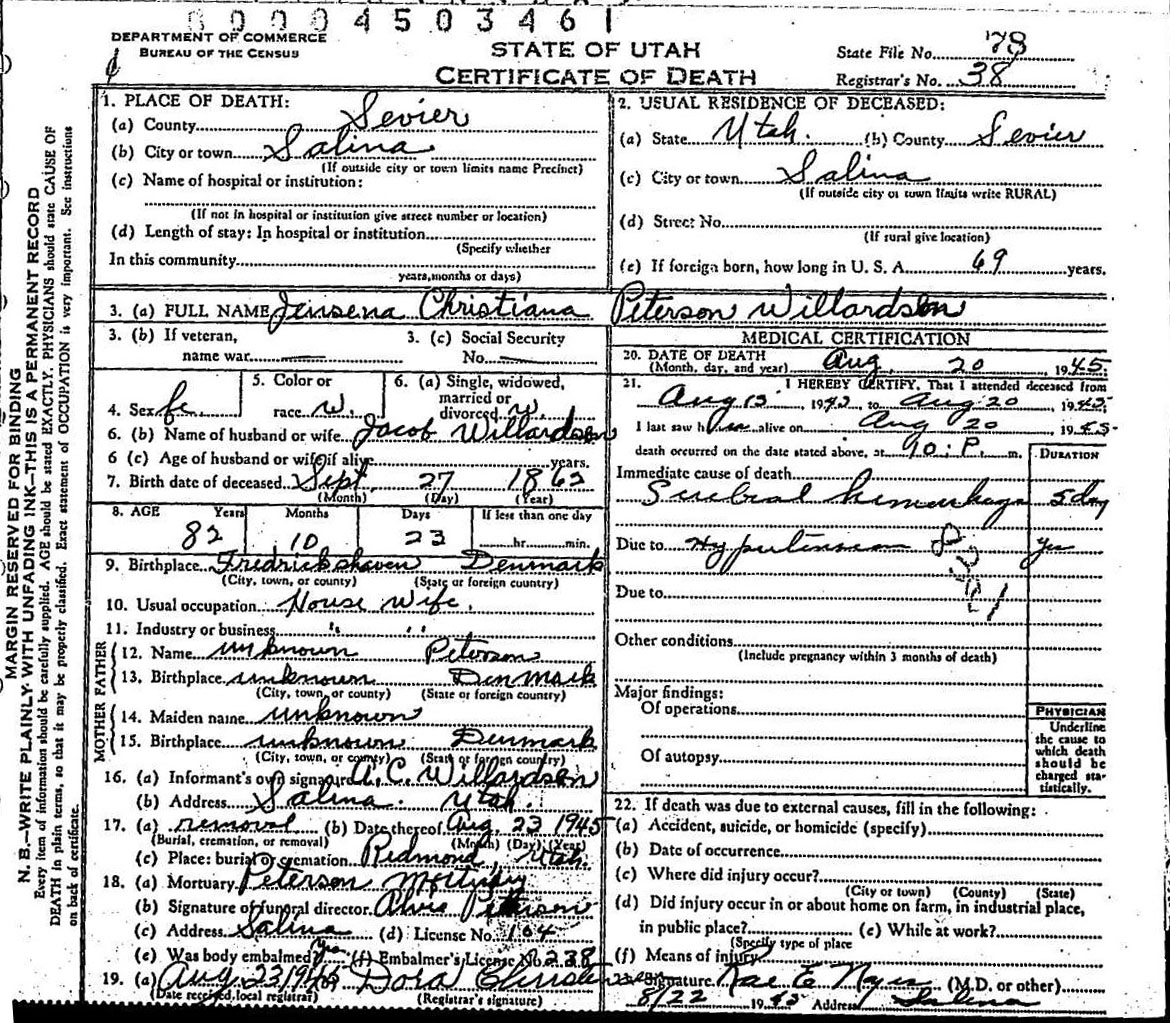 0 0 0 0 4 5 0 3 4 6 1
DEPARTMENT OF COMMERCE
BUREAU OF THE CENSUS
STATE OF UTAH
CERTIFICATE OF DEATH
State File No. 78
Registrar's No. 38
MARGIN RESERVED FOR BINDING
N. B.—WRITE PLAINLY WITH UNFADING INK—THIS IS A PERMANENT RECORD
Every item of information should be carefully supplied. AGE should be stated EXACTLY. PHYSICIANS should state CAUSE OF
DEATH in plain terms, so that it may be properly classified. Exact statement of OCCUPATION is very important. See instructions
on back of certificate.
1. PLACE OF DEATH:
(a) County Sevier
(b) City or town Salina
(If outside city or town limits name Precinct)
(c) Name of hospital or institution:
(If not in hospital or institution give street number or location)
(d) Length of stay: In hospital or institution
(Specify whether
In this community
years, months or days)
2. USUAL RESIDENCE OF DECEASED:
(a) State Utah. (b) County Sevier
(c) City or town Salina
(If outside city or town limits write RURAL)
(d) Street No.
(If rural give location)
(e) If foreign born, how long in U. S. A. 69 years.
3. (a) FULL NAME Jensena Christiana Peterson Willardson
3. (b) If veteran,
name war —
3. (c) Social Security
No. —
4. Sex fe.
5. Color or
race w.
6. (a) Single, widowed,
married or
divorced w.
6. (b) Name of husband or wife Jacob Willardson
6 (c) Age of husband or wife if alive years.
7. Birth date of deceased Sept. 27 1862
(Month) (Day) (Year)
8. AGE Years Months Days If less than one day
82 10 23 hr. min.
9. Birthplace Fredrickshaven Denmark
(City, town, or county) (State or foreign country)
10. Usual occupation House Wife.
11. Industry or business " "
FATHER
12. Name unknown Peterson
13. Birthplace unknown Denmark
(City, town, or county) (State or foreign country)
MOTHER
14. Maiden name unknown
15. Birthplace unknown Denmark
(City, town, or county) (State or foreign country)
16. (a) Informant's own signature A. C. Willardson
(b) Address Salina. Utah.
17. (a) removal (b) Date thereof Aug. 23 1945
(Burial, cremation, or removal) (Month) (Day) (Year)
(c) Place: burial or cremation Redmond, Utah.
18. (a) Mortuary Peterson Mortuary
(b) Signature of funeral director Alvie Peterson
(c) Address Salina (d) License No. 164
(e) Was body embalmed Yes (f) Embalmer's License No. 238
19. (a) Aug. 23/1945 Dora
(Date received, local registrar) (Registrar's signature)
MEDICAL CERTIFICATION
20. DATE OF DEATH
(Month, day, and year) Aug. 20 1945.
21. I HEREBY CERTIFY, That I attended deceased from
Aug 15, 1945 to Aug 20, 1945
I last saw h alive on Aug 20 1945
death occurred on the date stated above, at 10: P. m.
DURATION
Immediate cause of death
hemorhage 5 day
Due to Hypertension
Due to
Other conditions
(Include pregnancy within 3 months of death)
Major findings:
Of operations
Of autopsy
PHYSICIAN
Underline
the cause to
which death
should be
charged sta-
tistically.
22. If death was due to external causes, fill in the following:
(a) Accident, suicide, or homicide (specify)
(b) Date of occurrence
(c) Where did injury occur?
(City or town) (County) (State)
(d) Did injury occur in or about home on farm, in industrial place,
in public place? (e) While at work?
(Specify type of place
(f) Means of injury
23. Signature Rae E Noyes (M.D. or other)
8/22 1945 Address Salina